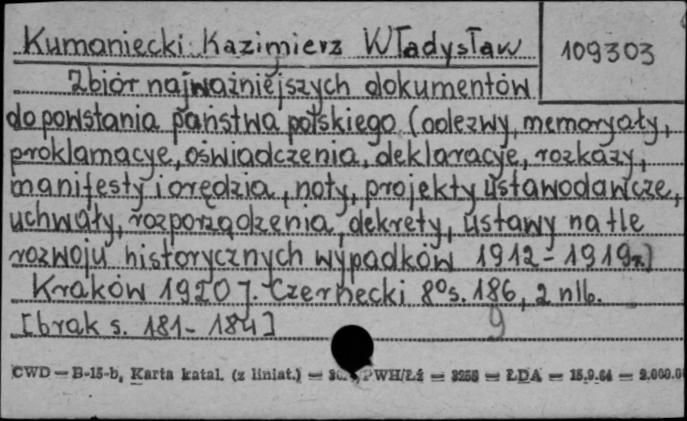 Kumaniecki Kazimierz Władysław
109303
Zbiór najważniejszych dokumentów
do powstania państwa polskiego (odezwy, memoryały,
proklamacye, oświadczenia, deklaracye, rozkazy,
manifesty i orędzia, noty, projekty ustawodawcze,
uchwały, rozporządzenia, dekrety, ustawy na tle
rozwoju historycznych wypadków 1912-1919r.)
Kraków 1920 J. Czernecki 8° s. 186, 2 nlb.
[brak s. 181-184] 9
CWD — B-15-b, Karta katal. (z liniat.) — PWH/Łź — 3256 — ŁDA — 15.9.64 — 2.000.0